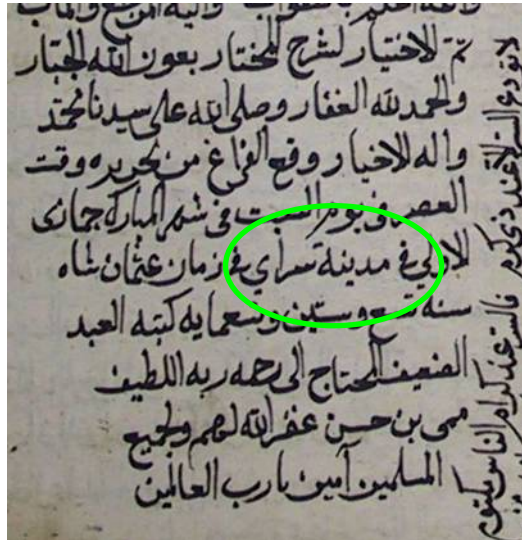 تم الاختيار لشرح المختار بعون الله الجبار
والحمد لله الغفار وصلى الله على سيدنا محمد
واله الاخيار وقع الفراغ من تحريره وقت
العصر فى يوم السبت فى شهر المبارك جمازى
الاولي في مدينة سراي في زمان عثمان شاه
سنه تسع وستين وتسعمايه كتبه العبد
الضعيف المحتاج الى رحمه ربه اللطيف
بن حسن عفر الله لهم ولجميع
المسلمين آمين يارب العالمين
لا تودع السر الا عند ذى كرم فالسر عند كرام الناس مكتوم